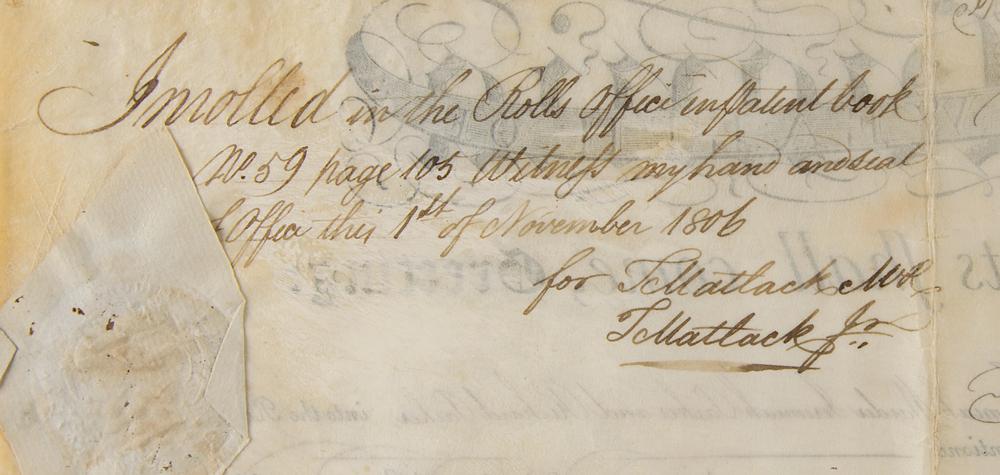 Inrolled in the Rolls Office in Patent book
No. 59 page 105 Witness my hand and seal
Office this 1st of November 1806
for T Matlack MR
T Matlack Jr